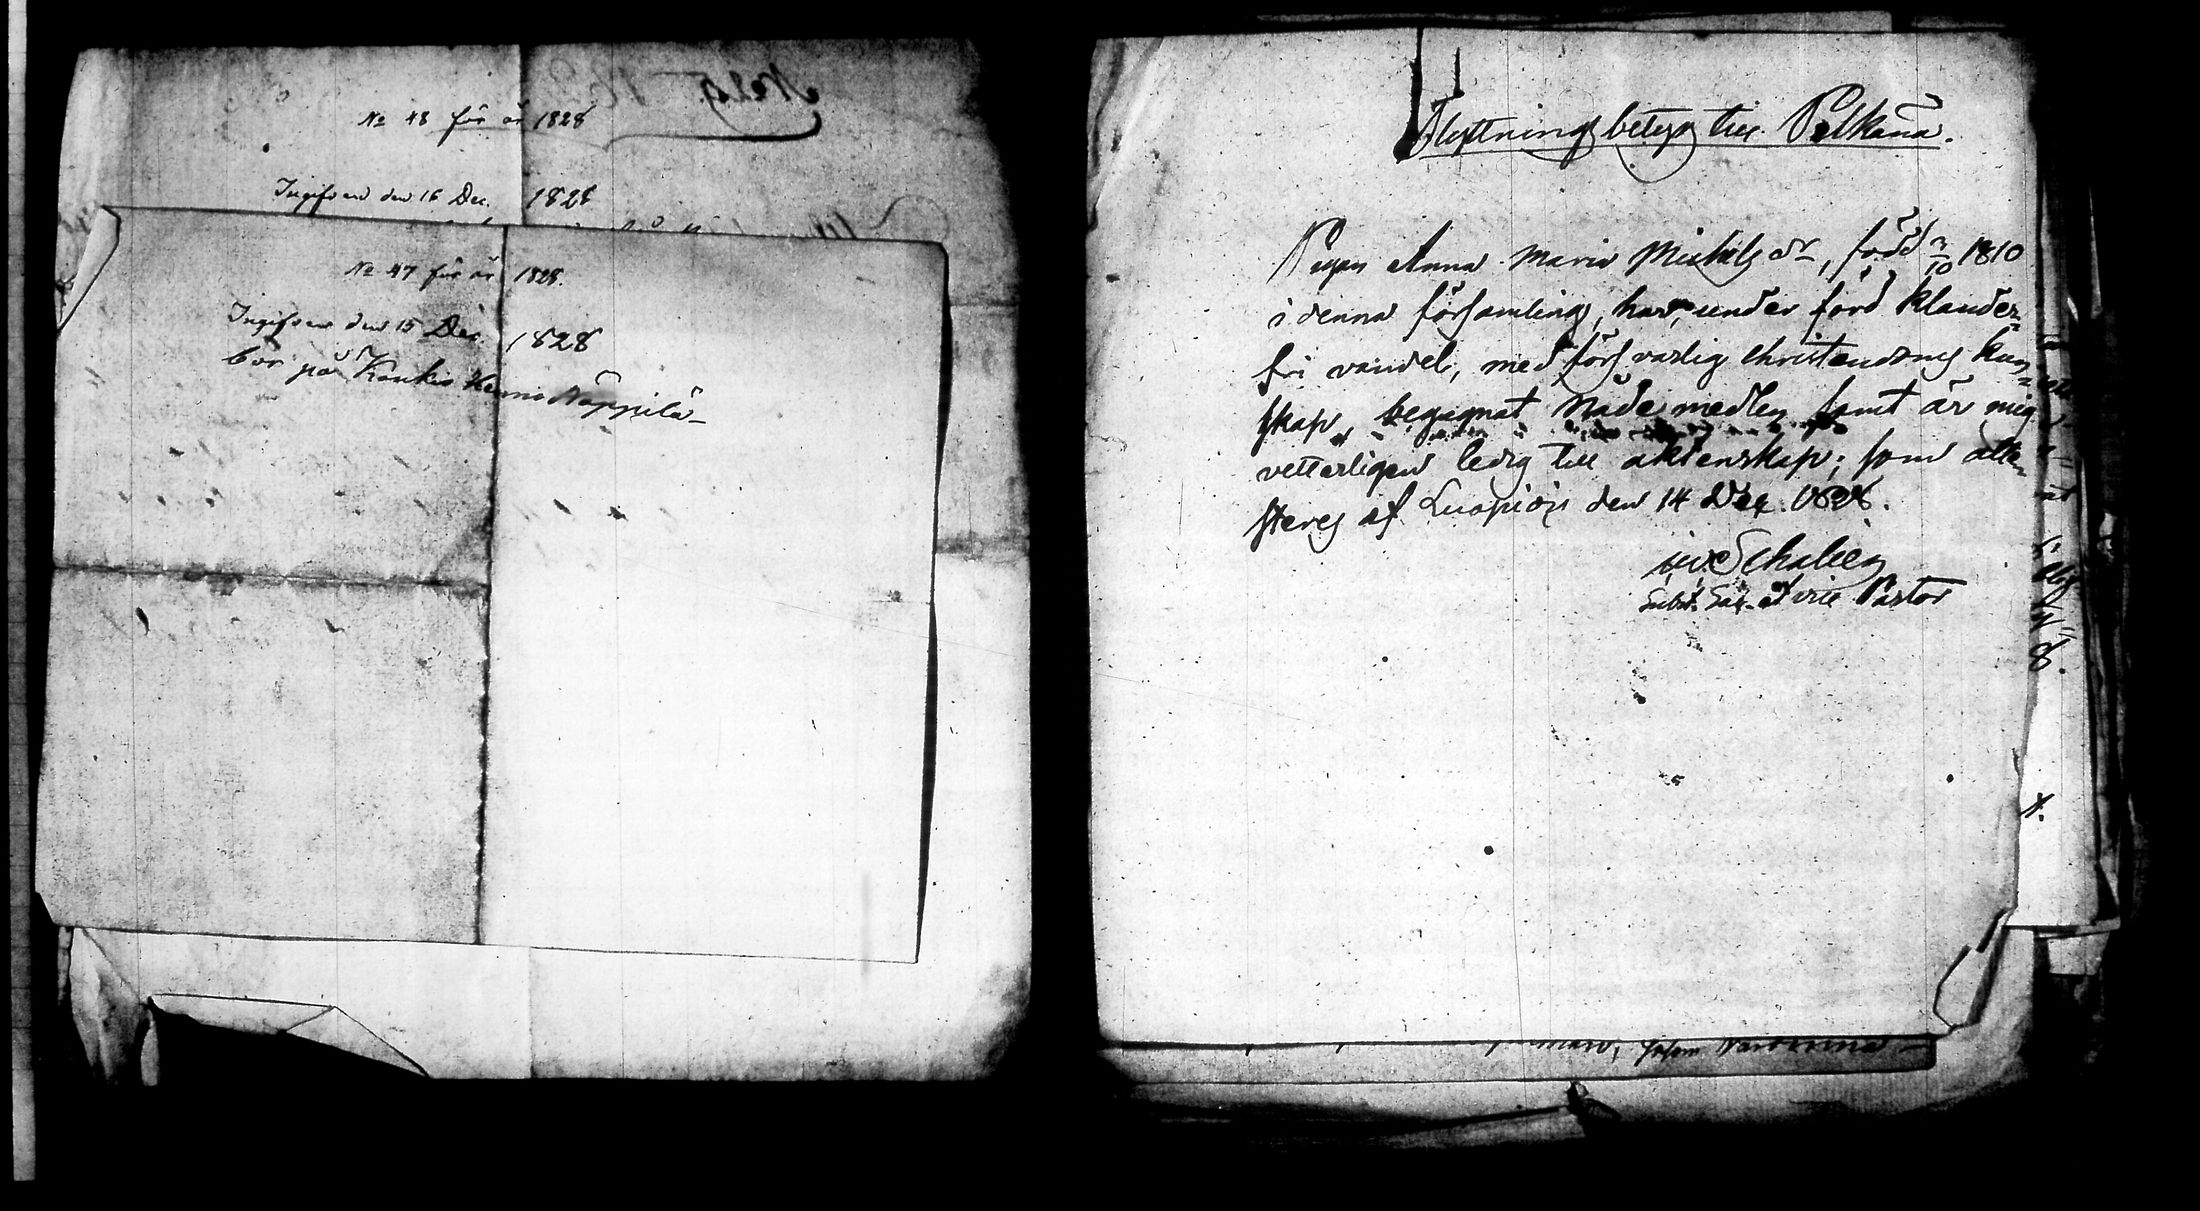 No 48 för år 1828
Ingifven den 16 Dec. 1828
No 47 för år 1828.
Ingifven den 15 Dec. 1828
bor på Kaukis Hemma Näppilä
Flyttnings betyg till Pelkäna.
Pigan Anna Maria Michels dr, född 3/10 1810
i denna församling, har, under förd klander-
fri vandel, med försvarlig christendoms kun-
skap, begagnat Nådemedlen samt är mig
vetterligen ledig till äktenskap; som atte-
steras af Luopiois den 14 Dec. 1828.
Schalien
Subst. Sac. et vice Pastor
8.